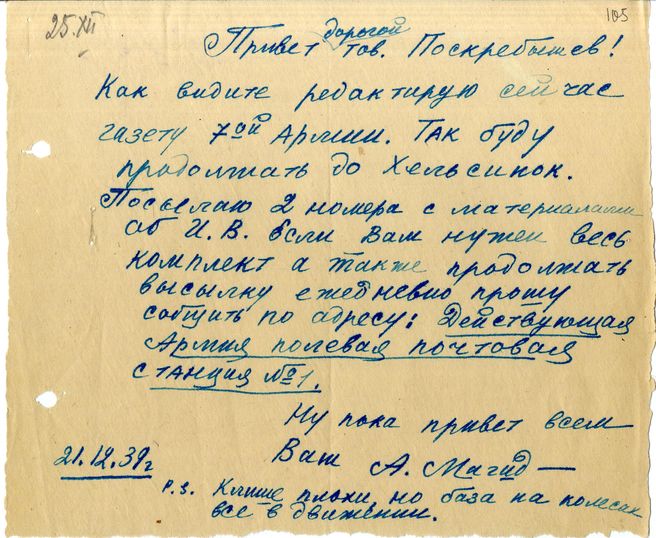 25.XII
105
дорогой
Привет тов. Поскребышев!
Как видите редактирую сейчас
газету 7ой Армии. Так буду
продолжать до Хельсинок.
Посылаю 2 номера с материалами
об И.В. Если Вам нужен весь
комплект а также продолжать
высылку ежедневно прошу
сообщить по адресу: Действующая
Армия полевая почтовая
станция №1.
Ну пока привет всем
Ваш А. Магид
21.12.39г
P.S. Клише плохи, но база на колесах
все в движении.